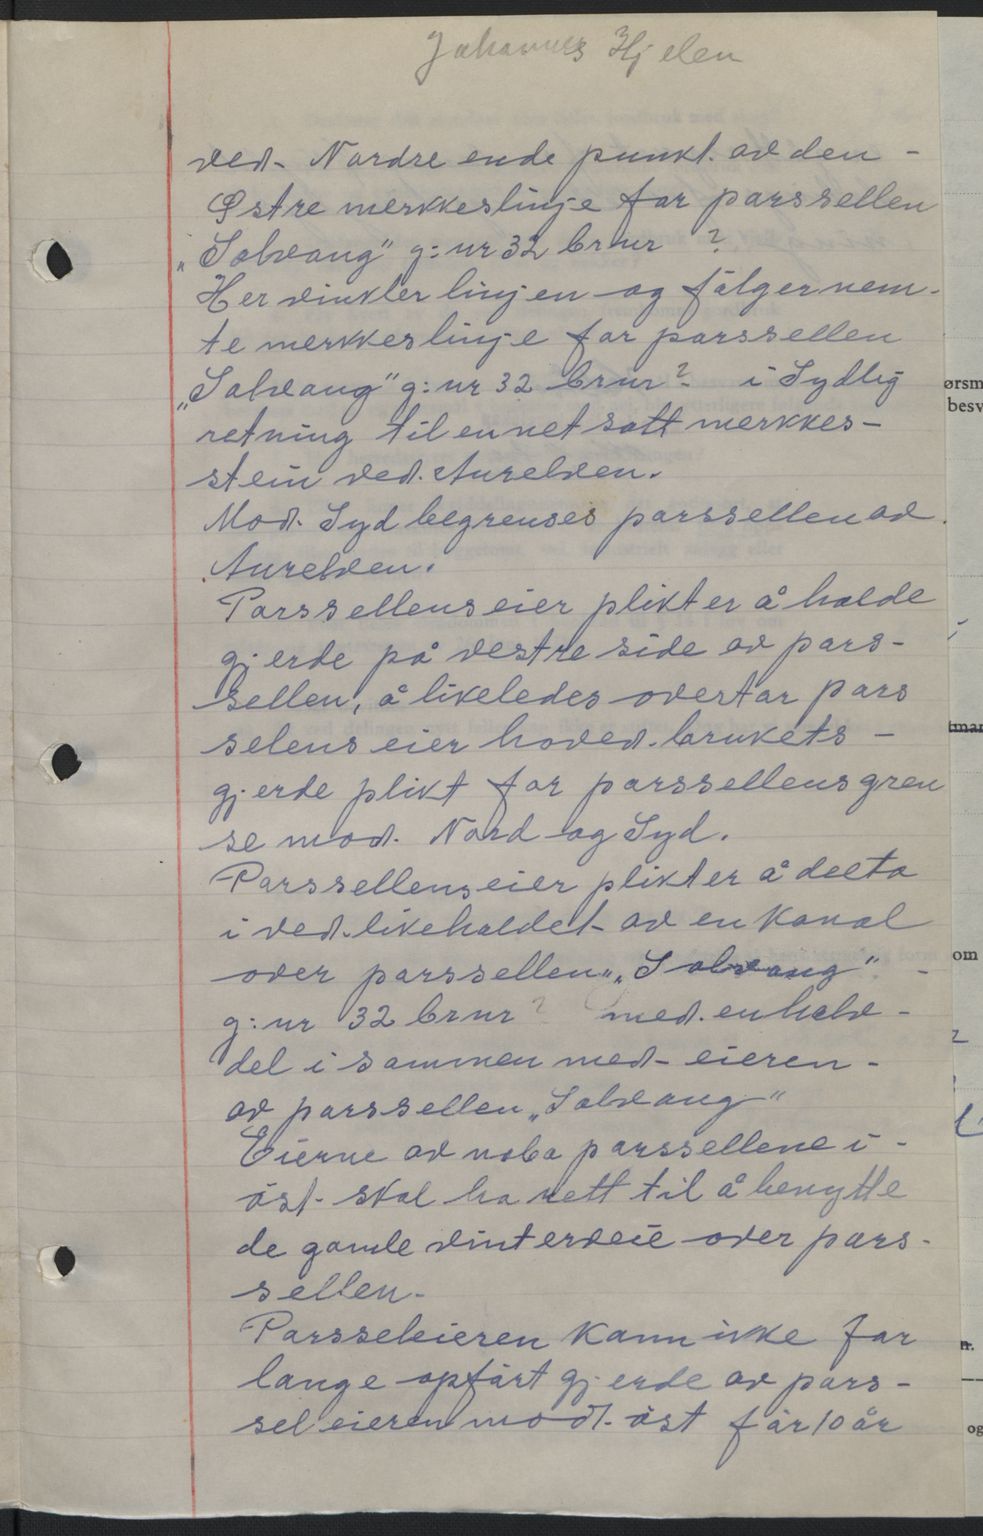 Johannes Hjelen
ved. Nordre ende punkt. av den -
Østre merkkeslinje for parssellen
„Solvang" g:nr 32 brnr ?
Her vinkler linjen og fölger nem-
te merkkeslinje for parssellen
„Solvang" g:nr 32 brnr ? i Sydlig
retning til en net satt merkkes-
stein ved. Aurelven.
Mod. Syd begrenses parssellen av
Aurelven.
Parssellens eier plikter å holde
gjerde på vestre side av pars-
sellen, å likeledes overtar pars
selens eier hoved.brukets -
gjerde plikt for parssellens gren
se mod. Nord og Syd.
Parssellens eier plikter å delta
i ved.likeholdet av en Kanal
over parssellen „Solvang" -
g:nr 32 brnr ? med. en halv -
del i sammen med eieren -
av parssellen „Solvang"
Eierne av nabo parssellene i -
öst. skal ha rett til å benytte
de gamle vinterveie over pars-
sellen.
Parsseleieren kann ikke for
lange opfört gjerde av pars-
sel eieren mod. öst för 10 år
ørsm
besv
om
og